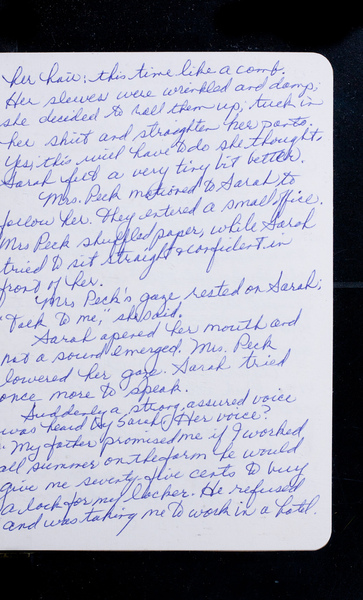 her hair; this time like a comb.
Her sleeves were wrinkled and damp;
she decided to roll them up; tuck in
her shirt and straighten her pants.
Yes; this will have to do she thought.
Sarah felt a very tiny bit better.
Mrs. Peck motioned to Sarah, to
follow her. They entered a small office.
Mrs Peck shuffled paper, while Sarah
tried to sit straight & confident in
front of her.
Mrs Peck's gaze rested on Sarah;
"Talk to me," she said.
Sarah opened her mouth and
not a sound emerged. Mrs. Peck
lowered her gaze. Sarah tried
once more to speak.
Suddenly a strong, assured voice
was heard by Sarah. Her voice?
"My father promised me if I worked
all summer on the farm he would
give me seventy-five cents to buy
a lock for my locker. He refused
and was taking me to work in a hotel.